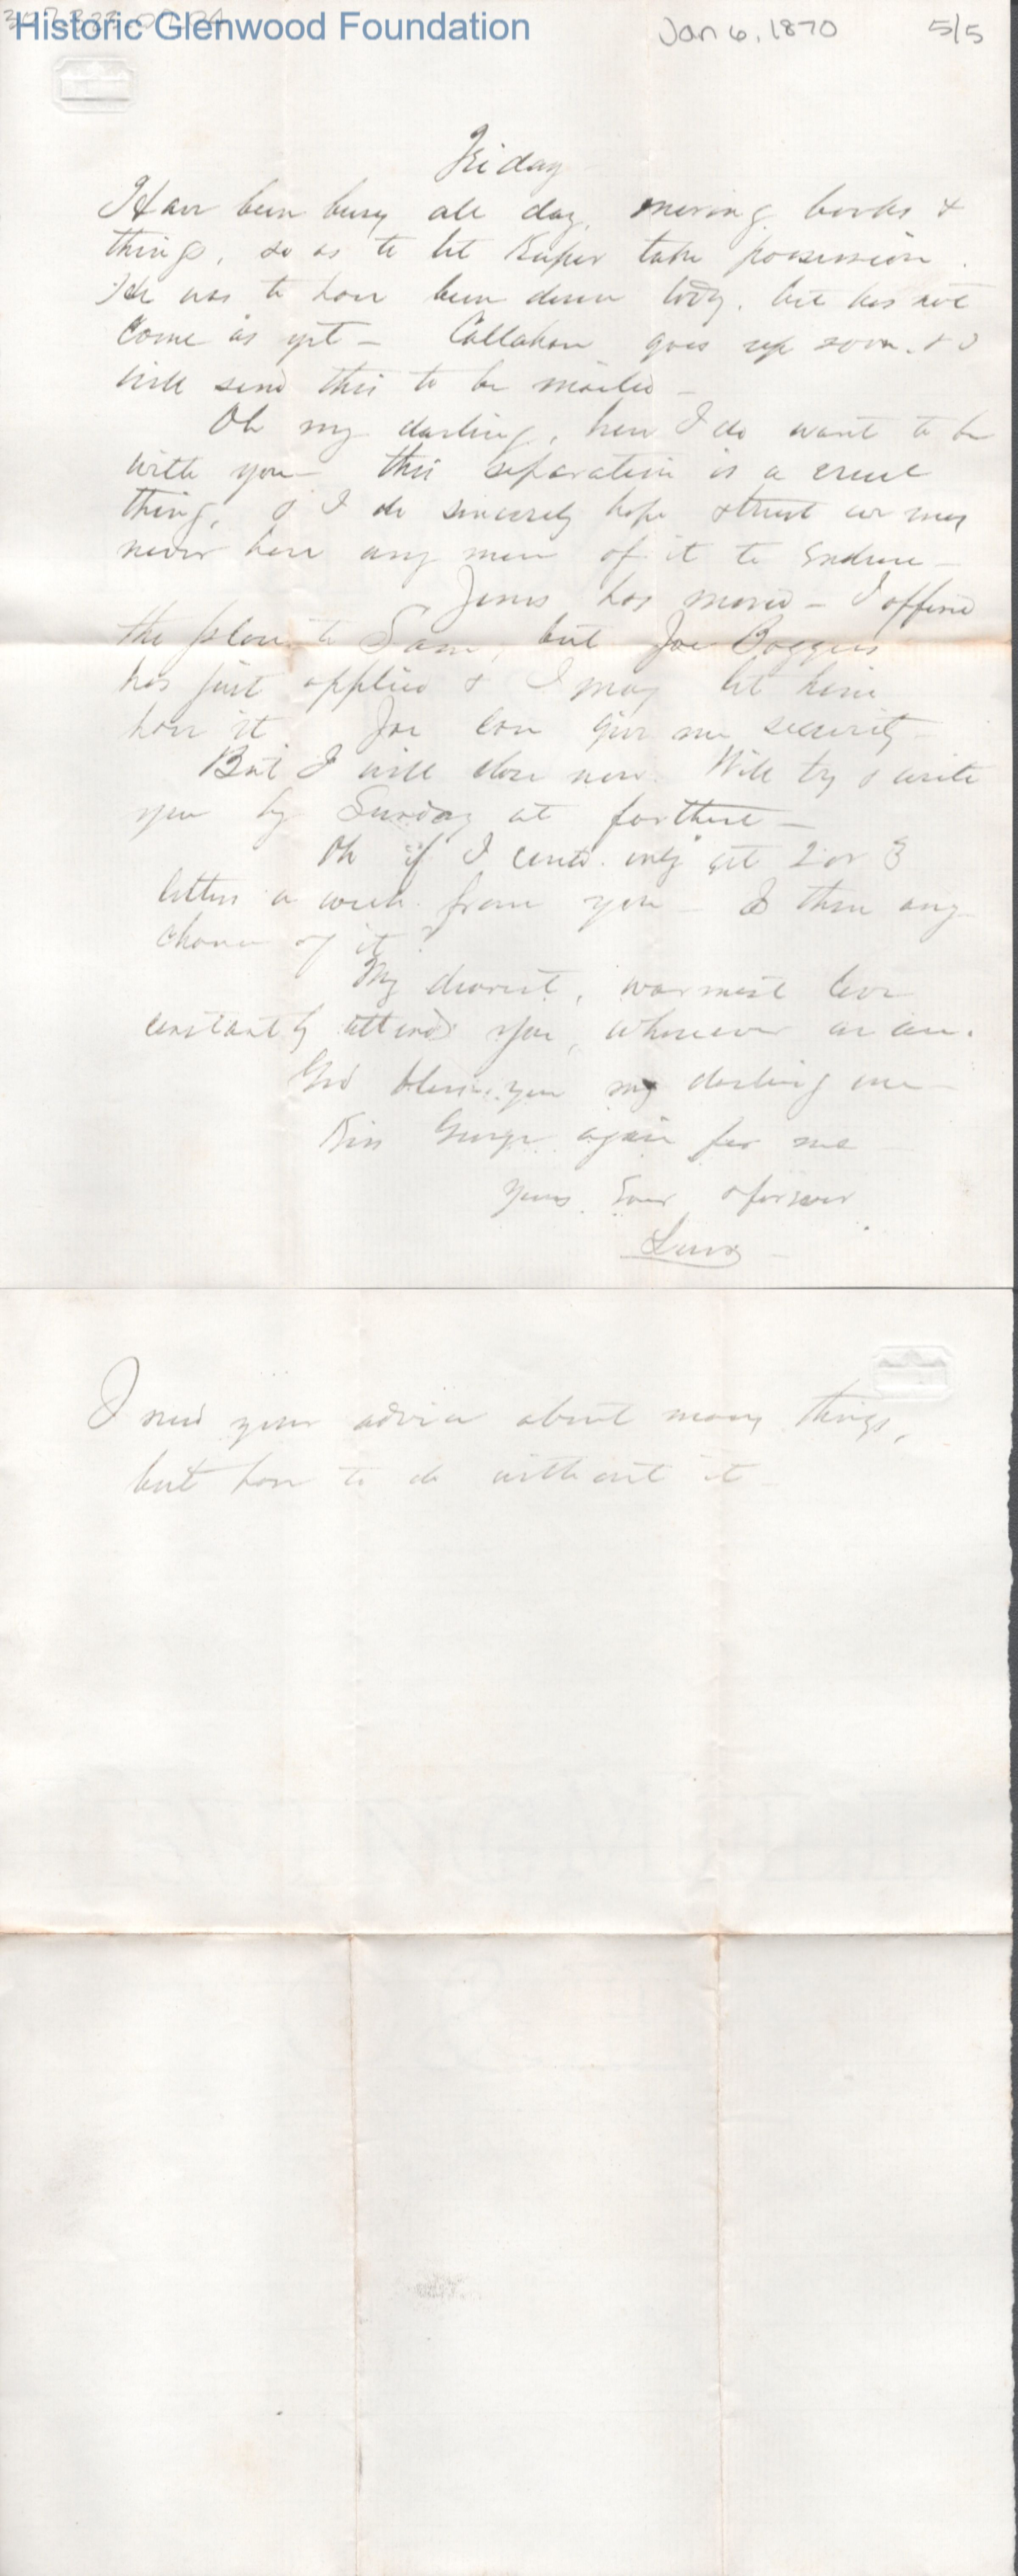 Historic Glenwood Foundation
Jan 6, 1870 5/5
Friday
Have been busy all day, moving books &
things, so as to let Kuper take possession.
He was to have been down tody. but has not
come as yet – Callahan goes up soon. & I
will send this to be mailed –
Oh my darling, how I do want to be
with you – this separation is a cruel
thing, & I do sincerely hope & trust we may
never have any more of it to endure –
Jones has moved – I offered
the place to Sam, but Joe Boggess
has just applied & I may let him
have it Joe can give me security –
But I will close now. Will try & write
you by Sunday at farthest –
Oh if I could only get 2 or 3
letters a week from you – Is there any
chance of it?
My dearest, warmest love
constantly attends you, wherever we are.
God bless you my darling one –
Kiss George again for me –
Yours Ever & forever
Lewis –
I need your advice about many things,
but have to do without it –